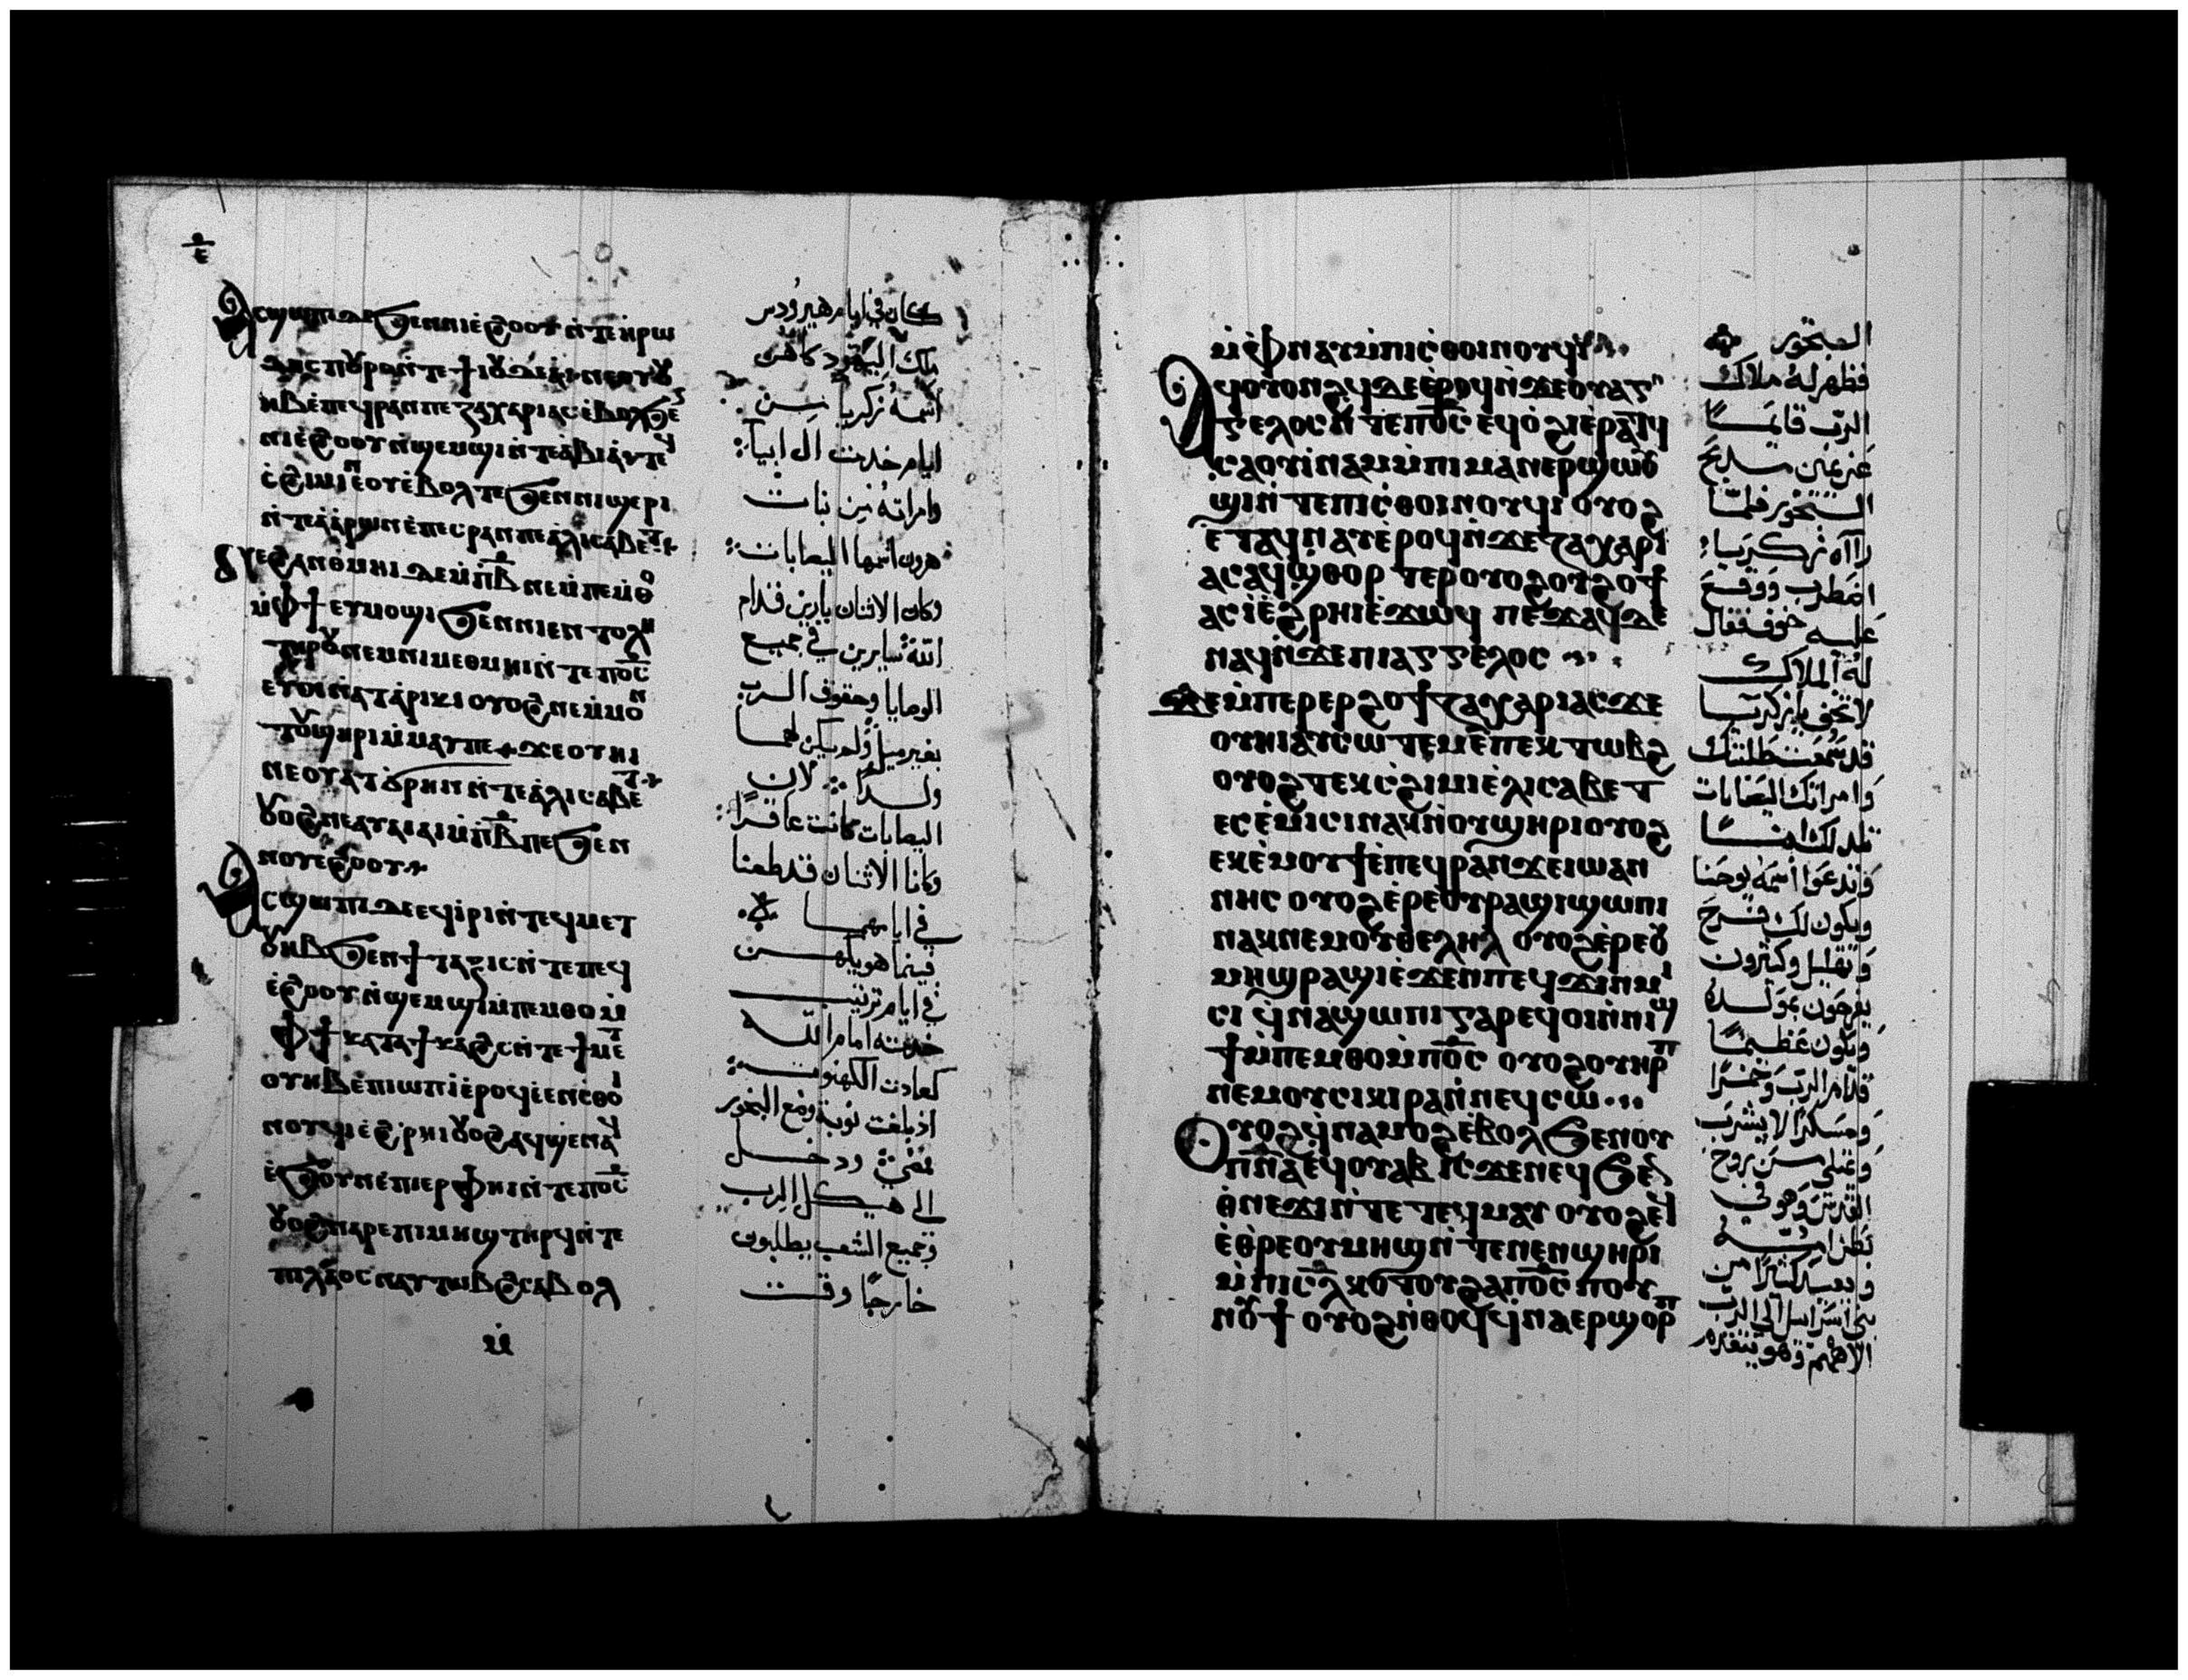 ⲁⲥϣⲱⲡⲓ ⲇⲉ ϧⲉⲛ ⲛⲓⲉϩⲟⲟⲩ ⲛ̀ⲧⲉ ⲏⲣⲱ
ⲇⲏⲥ ⲡⲟⲩⲣⲟ ⲛ̀ⲧⲉ ϯⲓⲟⲩⲇⲉⲁ̀ ⲛⲉ ⲟⲩⲟⲩ
ⲏⲃ ⲉ̀ⲡⲉϥⲣⲁⲛ ⲡⲉ ⲍⲁⲭⲁⲣⲓⲁⲥ ⲉ̀ⲃⲟⲗ ϧⲉ
ⲛⲓⲉ̀ϩⲟⲟⲩ ⲛ̀ϣⲉⲙϣⲓ ⲛ̀ⲧⲉ ⲁⲃⲓⲁ̀ ⲛⲧⲉϥ
ⲥ̀ϩⲓⲙⲓ ⲛⲉ ⲟⲩⲉ̀ⲃⲟⲗ ⲧⲉ ϧⲉⲛ ⲛⲓϣⲉⲣⲓ
ⲛ̀ⲧⲉ ⲁ̀ⲁ̀ⲣⲱⲛ ⲉ̀ⲡⲉⲥⲣⲁⲛ ⲡⲉ ⲁ̀ⲗⲓⲥⲁⲃⲉⲧ
ⲟⲩⲉϩⲁⲛⲑⲙⲏⲓ ⲇⲉ ⲙ̀ⲡⲃ̅ ⲛⲉ ⲙ̀ⲡⲉⲙ̀ⲑⲟ
ⲙ̀ⲫϯ ⲉⲩⲙⲟϣⲓ ϧⲉⲛ ⲛⲓⲉⲛⲧⲟⲗⲏ
ⲧⲏⲣⲟⲩ ⲛⲉⲙ ⲛⲓⲙⲉⲑⲙⲏⲓ ⲛ̀ⲧⲉ ⲡⲟ̅ⲥ̅
ⲉⲩⲟⲓ ⲛ̀ⲁⲧⲁ̀ⲣⲓⲕⲓ ⲟⲩⲟϩ ⲛⲉ ⲙ̀ⲙⲟⲛ
ⲧⲟⲩϣⲏⲣⲓ ⲙ̀ⲙⲁⲩ ⲡⲉ ϫⲉ ⲟⲩⲏⲓ
ⲛⲉ ⲟⲩⲁⲧϭⲣⲏⲛ ⲛ̀ⲧⲉ ⲁ̀ⲗⲓⲥⲁⲃⲉⲧ
ⲟⲩⲟϩ ⲛⲉⲁⲩⲁⲓⲁⲓ ⲙ̀ⲡⲃ̅ ⲡⲉ ϧⲉⲛ
ⲛⲟⲩⲉϩⲟⲟⲩ
ⲁⲥϣⲱⲡⲓ ⲇⲉ ⲉϥⲓ̀ⲣⲓ ⲛ̀ⲧⲉϥⲙⲉⲧ
ⲟⲩⲏⲃ ϧⲉⲛ ϯⲧⲁⲝⲓⲥ ⲛ̀ⲧⲉ ⲡⲉϥ
ⲉ̀ϩⲟⲟⲩ ⲛ̀ϣⲉⲙϣⲓ ⲙ̀ⲡⲉⲙⲑⲟ ⲙ̀
ⲫϯ ⲕⲁⲧⲁ ϯⲕⲁϩⲥ ⲛ̀ⲧⲉ ϯⲙⲉⲧ
ⲟⲩⲏⲃ ⲉ̀ⲡⲓⲱⲡ ⲓ̀ ⲉ̀ⲣⲟϥ ⲉ̀ⲉⲛⲥ̀ⲑⲟⲓ
ⲛⲟⲩϥⲓ ⲉ̀ϩⲣⲏⲓ ⲟⲩⲟϩ ⲁϥϣⲉⲛⲁϥ
ⲉ̀ϧⲟⲩⲛ ⲉ̀ⲡⲓⲉⲣⲫⲏⲓ ⲛ̀ⲧⲉ ⲡⲟ̅ⲥ̅
ⲟⲩⲟϩ ⲛⲁⲣⲉ ⲡⲓⲙⲏϣ ⲧⲏⲣϥ ⲛ̀ⲧⲉ
ⲡⲓⲗⲁⲟⲥ ⲛⲁⲩⲧⲱⲃϩ ⲥⲁⲃⲟⲗ
ⲙ̀
كان في ايام هيرودس
ملك اليهود كاهن
اسمه زكريا من
ايام خدمت ال ابيا
وامراته من بنات
هرون اسمها اليصابات
وكان الاثنان بارين قدام
الله سايرين في جميع
الوصايا وحقوق الرب
بغير ميل ولم يكن لهما
ولدا لان
اليصابات كانت عاقرًا
وكانا الاثنان قد طعنا
في ايامهما
فبينما هو يكهن
في ايام ترتيب
خدمته امام الله
كعادت الكهنوت
اذ بلغت نوبة وضع البخور
فدخل
الى هيكل الرب
وجميع الشعب يطلبون
خارجًا وقت
ⲙ̀ⲫⲛⲁⲩ ⲙ̀ⲡⲓⲥ̀ⲑⲟⲓⲛⲟⲩϥⲓ
ⲁϥⲟⲩⲟⲛϩϥ ⲇⲉ ⲉ̀ⲣⲟϥ ⲛ̀ϫⲉ ⲟⲩⲁⲅ
ⲅⲉⲗⲟⲥ ⲛ̀ⲧⲉ ⲡⲟ̅ⲥ̅ ⲉϥⲟ̀ϩⲓ ⲉ̀ⲣⲁⲧϥ
ⲥⲁⲟⲩⲓ̀ⲛⲁⲙ ⲙ̀ⲡⲓⲙⲁⲛⲉⲣϣⲱⲟⲩ
ϣⲓ ⲛ̀ⲧⲉ ⲡⲓⲥ̀ⲑⲟⲓⲛⲟⲩϥⲓ ⲟⲩⲟϩ
ⲉⲧⲁϥⲛⲁⲩ ⲉ̀ⲣⲟϥ ⲛ̀ϫⲉ ⲍⲁⲭⲁⲣⲓ
ⲁⲥ ⲁϥϣ̀ⲑⲟⲣⲧⲉⲣ ⲟⲩⲟϩ ⲟⲩϩⲟϯ
ⲁⲥⲓ̀ ⲉ̀ϩⲣⲏⲓ ⲉ̀ϫⲱϥ ⲡⲉϫⲁϥ ⲇⲉ
ⲛⲁϥ ⲛ̀ϫⲉ ⲡⲓⲁⲅⲅⲉⲗⲟⲥ
ϫⲉ ⲙ̀ⲡⲉⲣⲉⲣϩⲟϯ ⲍⲁⲭⲁⲣⲓⲁⲥ ϫⲉ
ⲟⲩⲏⲓ ⲁⲩⲥⲱⲧⲉⲙ ⲉ̀ⲡⲉⲕⲧⲱⲃϩ
ⲟⲩⲟϩ ⲧⲉⲕⲥ̀ϩⲓⲙⲓ ⲉ̀ⲗⲓⲥⲁⲃⲉⲧ
ⲉⲥⲉ̀ⲙⲓⲥⲓ ⲛⲁⲕ ⲛ̀ⲟⲩϣⲏⲣⲓ ⲟⲩⲟϩ
ⲉⲕⲉ̀ⲙⲟⲩϯ ⲉ̀ⲡⲉϥⲣⲁⲛ ϫⲉ ⲓⲱⲁⲛ
ⲛⲏⲥ ⲟⲩⲟϩ ⲉ̀ⲣⲉ ⲟⲩⲣⲁϣⲓ ϣⲱⲡⲓ
ⲛⲁⲕ ⲛⲉⲙ ⲟⲩⲑⲉⲗⲏⲗ ⲟⲩⲟϩ ⲉ̀ⲣⲉ ⲟⲩ
ⲙⲏϣ ⲣⲁϣⲓ ⲉ̀ϫⲉⲛ ⲡⲉϥϫⲓⲛⲙⲓ
ⲥⲓ ϥ̀ⲛⲁϣⲱⲡⲓ ⲅⲁⲣ ⲉϥⲟⲓ ⲛ̀ⲛⲓϣ
ϯ ⲙ̀ⲡⲉⲙⲑⲟ ⲙ̀ⲡⲟ̅ⲥ̅ ⲟⲩⲟϩ ⲟⲩⲏⲣⲡ
ⲛⲉⲙ ⲟⲩⲥⲓⲕⲓⲣⲁ ⲛ̀ⲛⲉϥⲥⲱ
ⲟⲩⲟϩ ϥ̀ⲛⲁⲙⲟϩ ⲉ̀ⲃⲟⲗ ϧⲉⲛ ⲟⲩ
ⲡⲛ̅ⲁ̅ ⲉϥⲟⲩⲁⲃ ⲓⲥϫⲉⲛ ⲉϥϧⲉⲛ
ⲑⲛⲉϫⲓ ⲛ̀ⲧⲉ ⲧⲉϥⲙⲁⲩ ⲟⲩⲟϩ ⲉϥⲉ̀
ⲉ̀ⲑⲣⲉ ⲟⲩⲙⲏϣ ⲛ̀ⲧⲉ ⲛⲉⲛϣⲏⲣⲓ
ⲙ̀ⲡⲓⲥ̅ⲗ̅ ⲕⲟⲧⲟⲩ ϩⲁ ⲡⲟ̅ⲥ̅ ⲡⲟⲩ
ⲛⲟⲩϯ ⲟⲩⲟϩ ⲛ̀ⲑⲟϥ ϥ̀ⲛⲁⲉⲣϣⲟⲣⲡ
البخور
فظهر له ملاك
الرب قايمًا
عن يمين مدبح
البخور فلما
رااه زكريا
اضطرب ووقع
عليه خوف فقال
له الملاك
لا تخف يا زكريا
قد سمعت طلبتك
وامراتك اليصابات
تلد لك ابنًا
وتدعوا اسمه يوحنا
ويكون لك فرح
وتهليل وكثيرون
يفرحون بمولده
ويكون عظيمًا
قدام الرب وخمرًا
ومسكرًا لا يشرب
ويمتلى من روح
القدس وهو في
بطن امه
ويعيد كثيرًا من
بني اسراييل الى الرب
الاههم وهو يتقدم